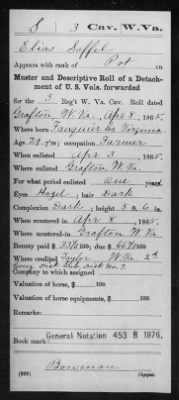 S | 3 | Cav. W. Va.
Elias Saffel
Appears with rank of Pvt on
Muster and Descriptive Roll of a Detach-
ment of U. S. Vols. forwarded
for the 3 Reg't W. Va. Cav. Roll dated
Grafton, W. Va., Apr 8, 1865.
Where born Fauquier co Virginia
Age 29 y'rs; occupation Farmer
When enlisted Apr 3, 1865.
Where enlisted Grafton, W. Va.
For what period enlisted One years.
Eyes Hazel; hair Dark
Complexion Dark; height 5 ft. 6 in.
When mustered in Apr 8, 1865.
Where mustered in Grafton W. Va.
Bounty paid $ 33 1/3/100; due $ 66 2/3/100
Where credited Taylor W Va 2d
Cong. Dist. Sub. Dist. No. 7.
Company to which assigned
Valuation of horse, $ /100
Valuation of horse equipments, $ /100
Remarks:
Book mark: General Notation 453 B 1876,
Bowman
(339) Copyist.